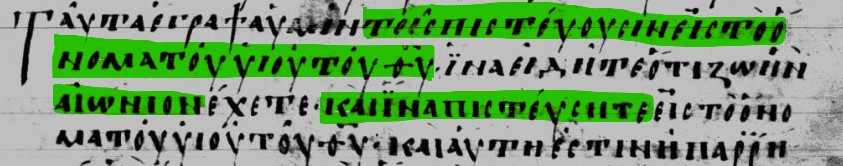 Ταῦτα ἔγραψα ὑμῖν τοῖς πιστεύουσιν εἰς τὸ ὄ
νομα τοῦ υἱοῦ τοῦ θ̅υ̅· ἵνα εἰδῆτε ὅτι ζωὴν
αἰώνιον ἔχετε· καὶ ἵνα πιστεύσητε εἰς τὸ ὄνο
μα τοῦ υἱοῦ τοῦ θ̅υ̅· καὶ αὕτη ἐστὶν ἡ παρρη